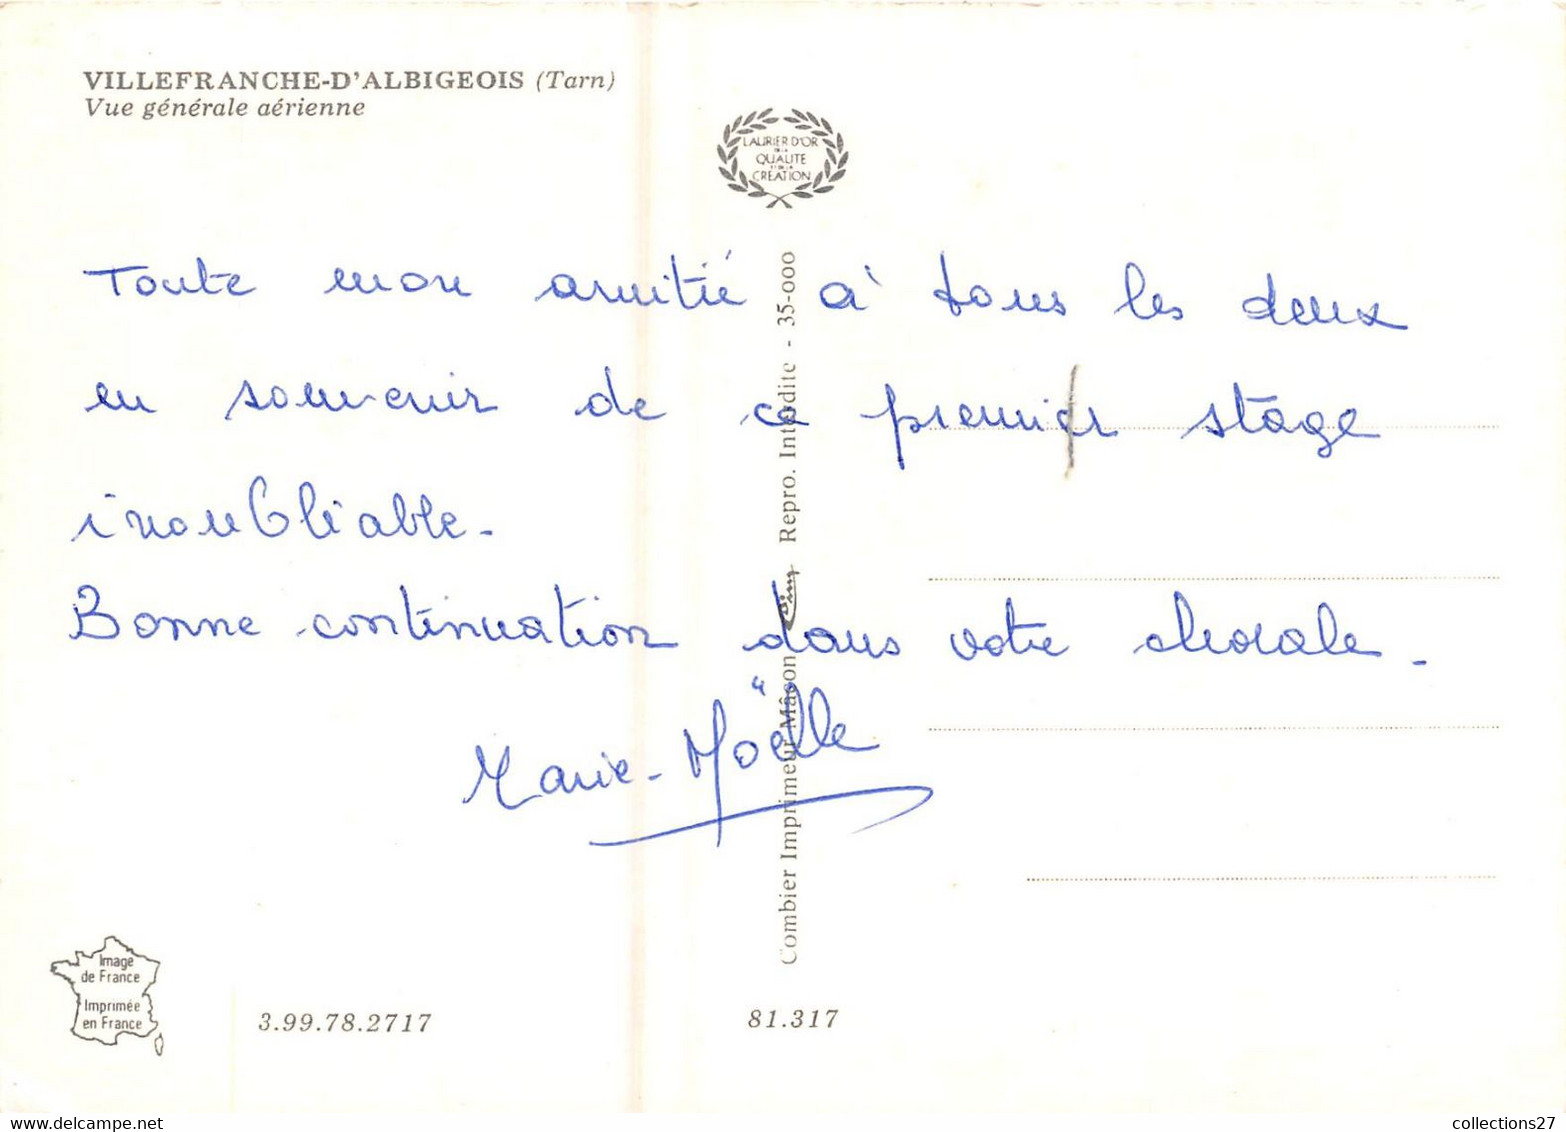 VILLEFRANCHE-D'ALBIGEOIS (Tarn)
Vue générale aérienne
LAURIER D'OR
DE LA
QUALITE
ET DE LA
CRÉATION
Toute mon amitié à tous les deux
en souvenir de ce premier stage
inoubliable.
Bonne continuation dans votre chorale.
Marie-Noëlle
Combier Imprimeur Mâcon Cim Repro. Interdite - 35-000
Image
de France
Imprimée
en France
3.99.78.2717
81.317
collections27